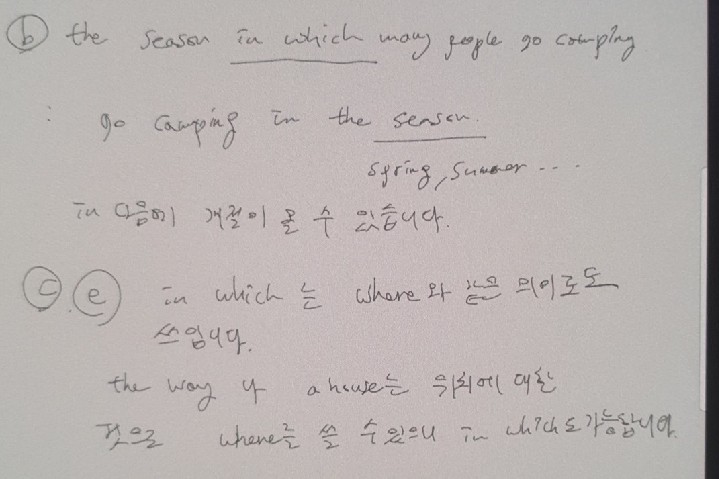 ⓑ the season in which many people go camping
: go camping in the season.
spring, summer ....
in 다음에 계절이 올 수 있습니다.
ⓒ.ⓔ in which 는 where 와 같은 의미로도
쓰입니다.
the way of a house는 위치에 대한
것으로 where를 쓸 수 있으니 in which도 가능합니다.